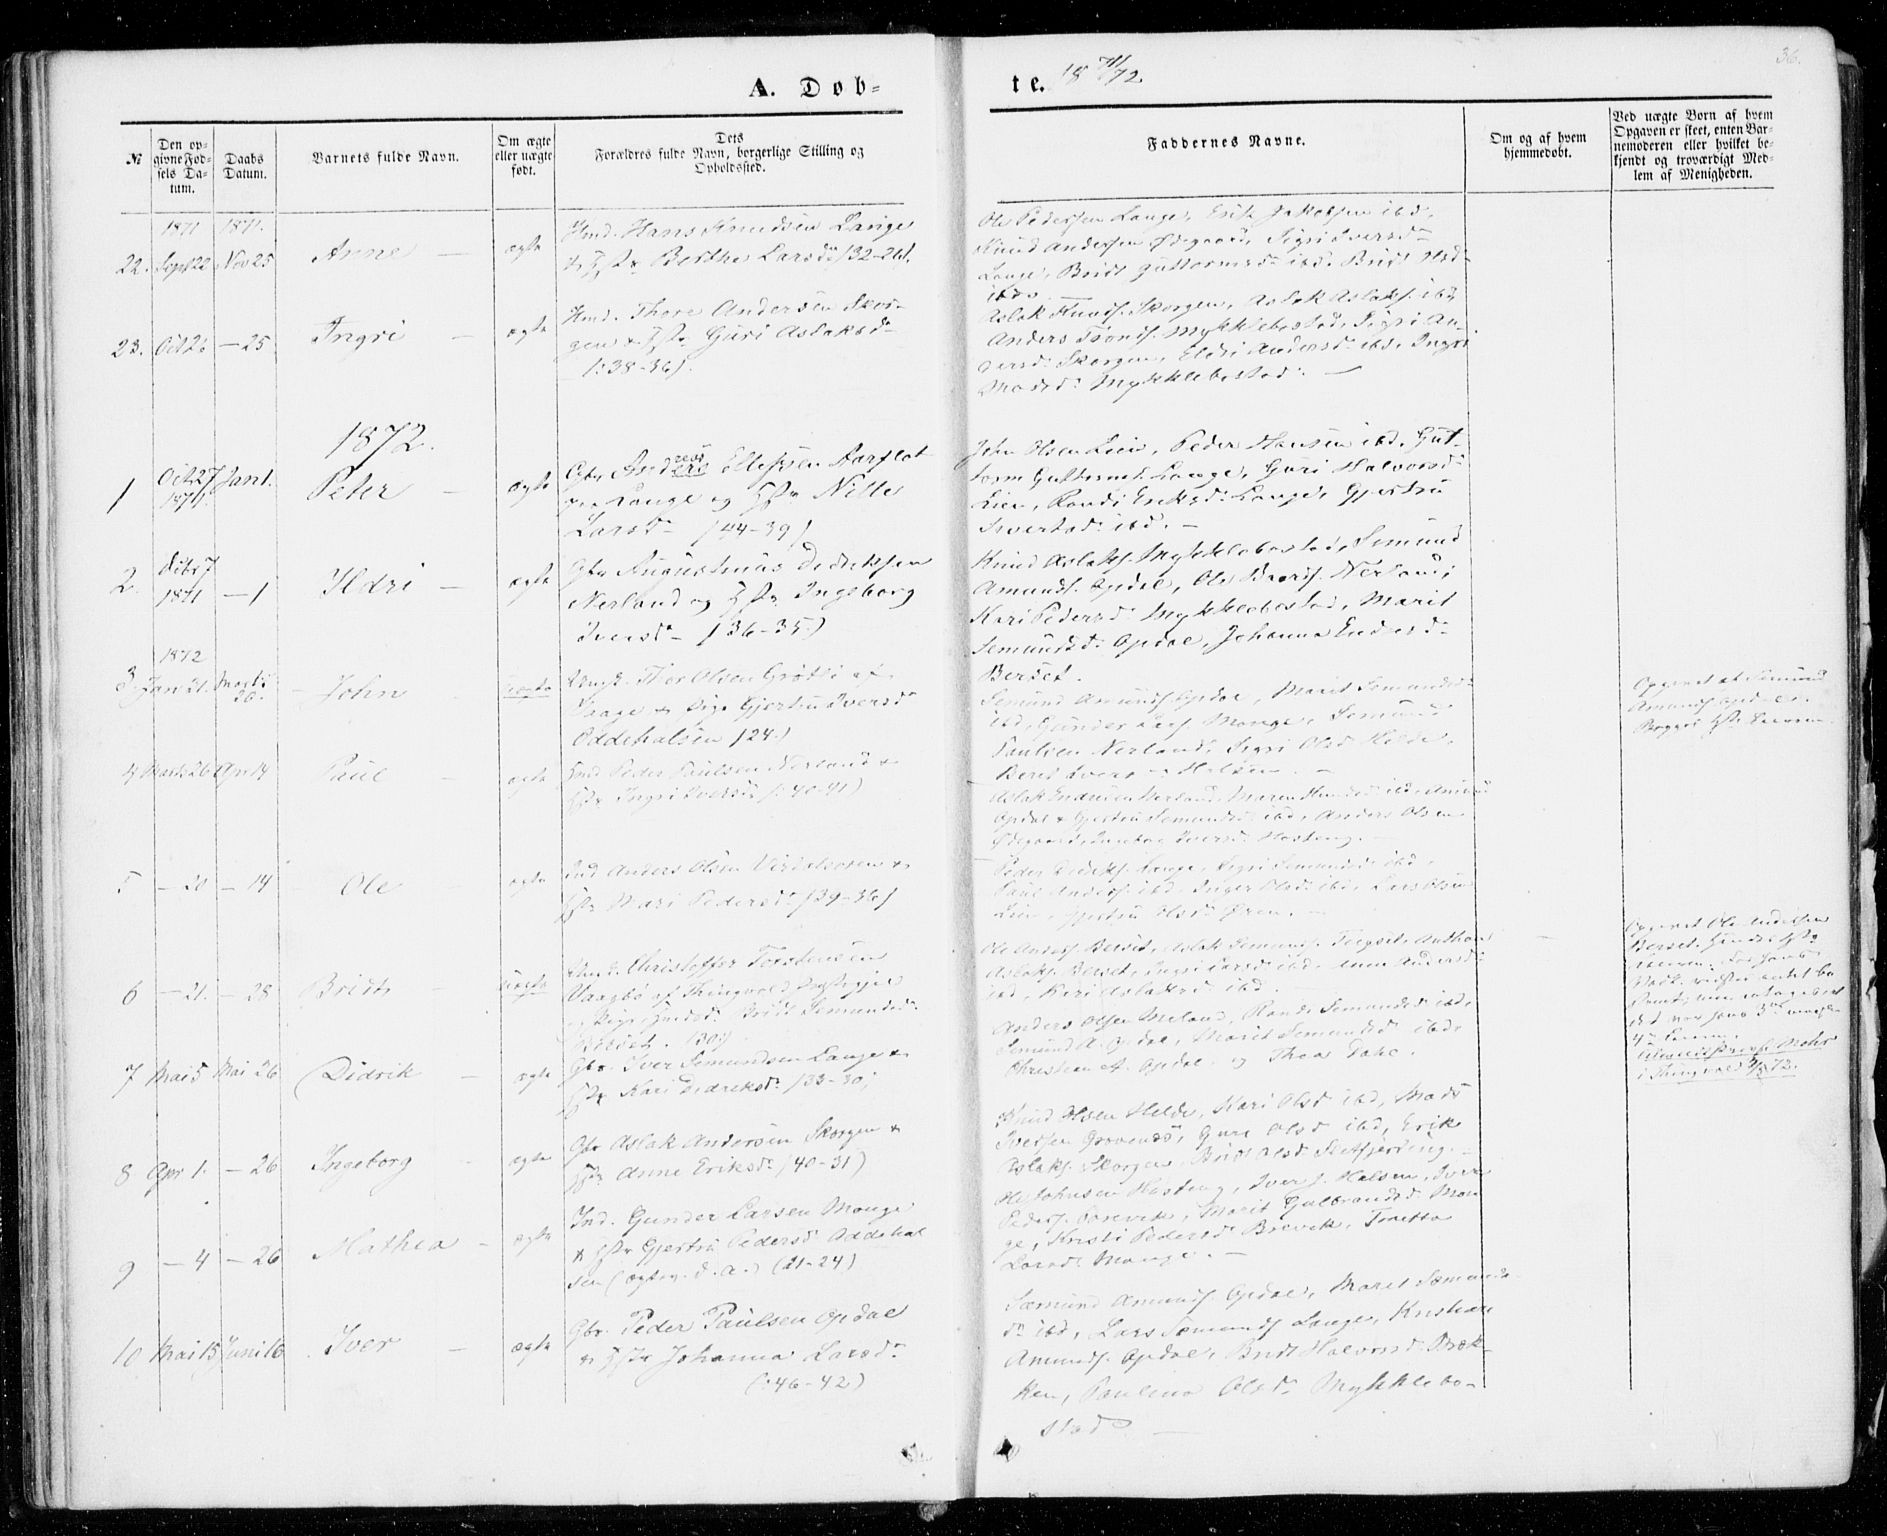 36.
A. Døb-
te. 18 71/72.
№
Den op-
givne Fød-
sels Da-
tum.
Daabs
Datum.
Barnets fulde Navn.
Om ægte
eller uægte
født.
Dets
Forældres fulde Navn, borgerlige Stilling og
Opholdssted.
Faddernes Navne.
Om og af hvem
hjemmedøbt.
Ved uægte Børn af hvem
Opgaven er skeet, enten Bar-
nemoderen eller hvilket be-
kjendt og troværdigt Med-
lem af Menigheden.
1871 1871.
22. Sept 22 Nov 25 Anne ægte
Hans Knudsen Lange
Berthe Larsd. (32-26).
Ole Pedersen Lange, Erik Jakobsen ibd.
Knud Andersen Ødegaard, Sigri Iversd.
Lange, Bridt Guttormsd. ibd. Bridt Olsd.
ibd.
23. Oct 26 — 25 Ingri — ægte
Thore Andersen Skor-
gen & Hstr Guri Aslaksd.
(:38-36).
Aslak Knuds. Skorgen, Aslak Aslaks. ibd,
Anders Tronds. Mykklebostad, Sigri An-
dersd. Skorgen, Eldri Andersd. ibd. Ingri
Madsd. Mykklebostad. —
1872.
1 Oct 27 1871. Jan 1. Peter — ægte
Gbr Andreas Ellefsen Aarflot
Lange og Hstr Nille
Larsd. (44-39)
John Olsen Lien, Peder Hansen ibd. Gut-
torm Guttormsen Lange, Guri Halvorsd.
Lien, Randi Eriksd. Lange, Gjertru
Sivertsd. ibd. —
2. Debr 7 1871 — 1 Ildri — ægte
Gbr Augustinus Didriksen
Nerland og Hstr Ingeborg
Iversd. — (36-35.)
Knud Aslaks. Mykklebostad, Semund
Amunds. Opdal, Ole Baards. Nerland,
Kari Pedersd. Mykklebostad, Marit
Semundsd. Opdal, Johanna Endresd.
Berset.
1872
3. Jan 21. Marts 26. John uægte
Thor Olsen Grødli af
Vaage & Pige Gjertru Iversd.
Oddehalsen (24.)
Semund Amunds. Opdal, Marit Semundsd.
ibd, Gunder Lars. Monge, Semund
Paulsen Nerland, Sigri Olsd. Helde,
Berit Ivers — Halsen. —
Opgivet af Semund
Amunds. Opdal.
4 Marts 26 Apr 14 Paul — ægte
Ind Peder Paulsen Nerland &
Hstr Ingri Iversd. (:40-41)
Aslak Endresen Nerland, Maren ibd. Amund
Opdal & Gjertru Semundsd. ibd, Anders Olsen
Ødegaard, Iversd. Hasteng. —
5 — 20 — 14 — Ole — ægte
Ind Anders Olsen &
Hstr Mari Pedersd. (39-36)
Peder Lange, Sigri Semundsd. ibd.
Paul Anders. ibd. Inger Olsd. ibd, Lars Olsen
Lien, Gjertru Olsd. Øren. —
6 — 21. — 28 Bridt — uægte
Christoffer Torstensen
Vaagbø af Thingvold Præstegjeld
Bridt Semundsd.
Berset. (30.)
Ole Anders. Berset, Aslak Semunds. Anthon
Aslaks. Berset, Ingri Larsd. ibd. Anne Andersd.
ibd, Kari Aslaksd. ibd. —
Opgivet Ole Andersen
Berset.
i Thingvold 72.
7 Mai 5 Mai 26 Didrik — ægte
Gbr. Iver Semundsen Lange &
Hstr Kari Didriksd. (33-30)
Anders Olsen Meland, Randi Semundsd. ibd,
Semund A. Opdal, Marit Semundsd. ibd.
Christian A. Opdal, og Thea Dahl.
8 Apr 1. — 26 Ingeborg — ægte
Gbr Aslak Andersen Skorgen &
Hstr Anne Eriksd. (40-31)
Knud Olsen Helde, Kari Olsd ibd, Mads
Iversen Grovens, Guri Olsd ibd, Erik
Aslaks. Skorgen, Bridt Olsd
9 — 4 — 26 Mathea — ægte
Ind. Gunder Larsen Monge
& Hstr Gjertru Pedersd. Oddehal-
sen (ægtev. d. A.) (21-24)
Ole Johnsen Hasteng, Iver J. Halsen, Iver
Peders. Marit Gulbrandsd. Mon-
ge, Kristi Pedersd. Brevik, Tonetta
Larsd. Monge. —
10 Mai 15 Juni 16 Iver — ægte
Gbr. Peder Paulsen Opdal
& Hstr Johanna Larsd.
(:46-42)
Sæmund Amunds. Opdal, Marit Sæmunds-
d. ibd, Lars Sæmunds. Lange, Kristian
Amunds. Opdal, Bridt Halvorsd. Bræk-
ken, Paulina Olsd. Mykklebo-
stad. —